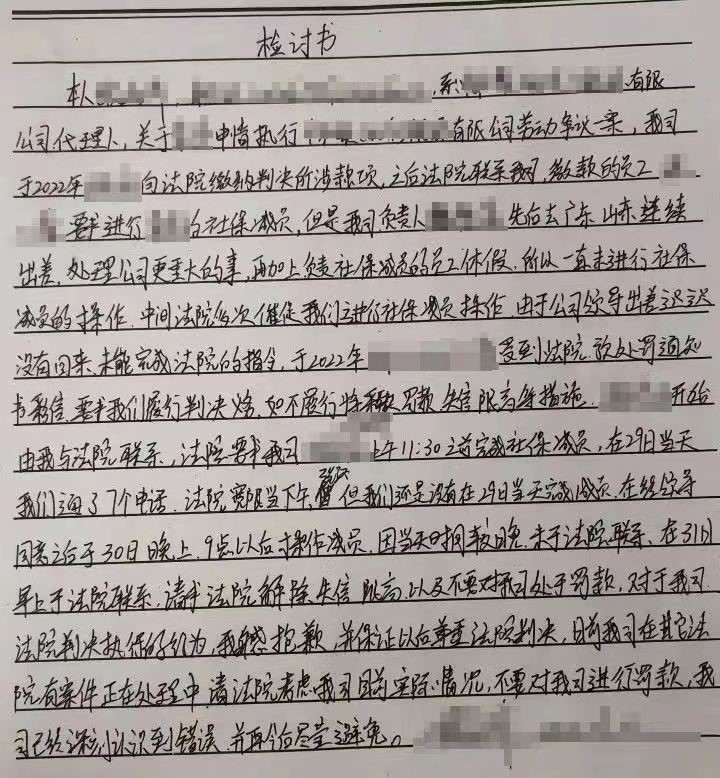 检讨书
本人，系有限
公司代理人，关于申请执行有限公司劳动争议一案，我司
于2022年向法院缴纳判决所涉款项，之后法院联系我司，缴款的员工
要求进行社保减员，但是我司负责人先后去广东 山东连续
出差，处理公司更重大的事，再加上负责社保减员的员工休假，所以一直未进行社保
减员的操作，中间法院多次催促我们进行社保减员操作，由于公司领导出差迟迟
没有回来，未能完成法院的指令，于2022年受到法院预处罚通知
书彩信，要求我们履行判决，如不履行将罚款 失信限高等措施，开始
由我与法院联系，法院要求我司上午11:30之前完成社保减员，在29日当天
我们通了7个电话，法院宽限当下午，但我们还是没有在29日当天完成减员，在经领导
同意之后于30日晚上，9点以后操作减员，因当天时间较晚，未于法院联系，在31日
早上于法院联系，请求法院解除失信 限高以及不要对我司处于罚款，对于我司
法院判决执行的行为，我感抱歉，并保证以后尊重法院判决，目前我司在其它法
院有案件正在处理中，请法院考虑我司目前实际情况，不要对我司进行罚款，我
司已经深刻认识到错误，并再今后尽量避免。